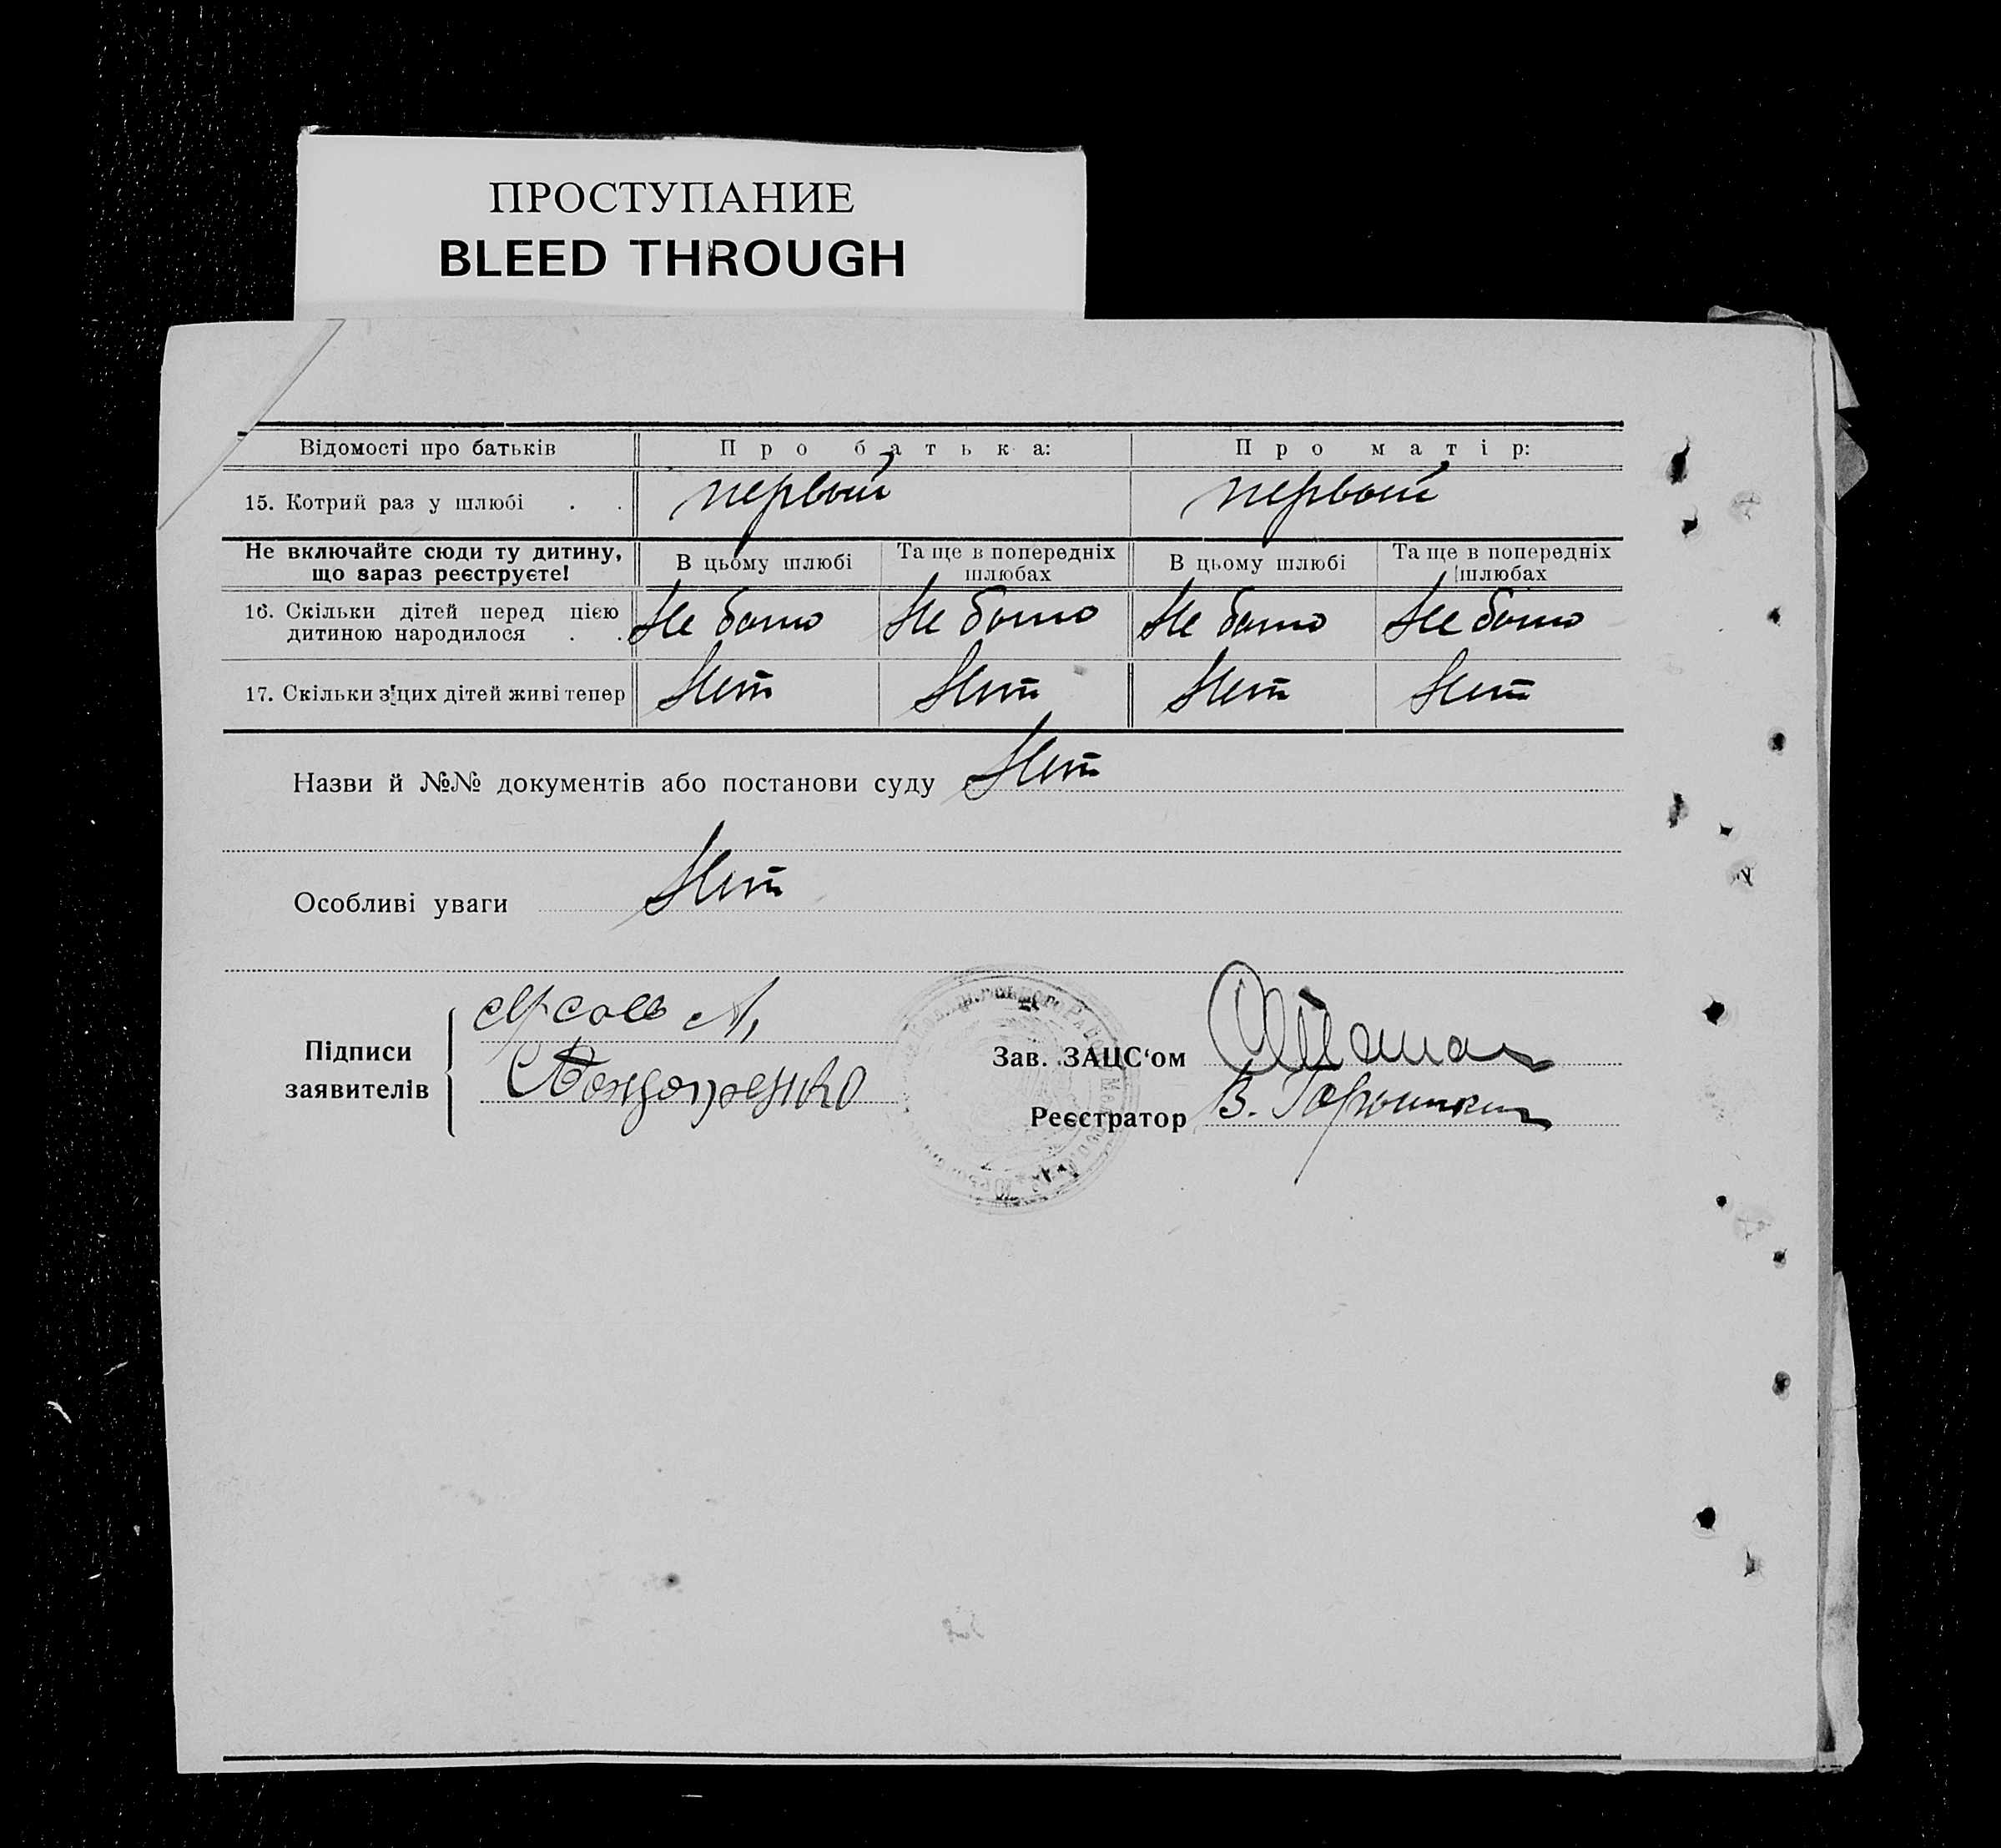 ПРОСТУПАНИЕ
BLEED THROUGH
Відомості про батьків Про батька: Про матір:
15. Котрий раз у шлюбі . . первый первый
Не включайте сюди ту дитину, що зараз реєструєте! В цьому шлюбі Та ще в попередніх шлюбах В цьому шлюбі Та ще в попередніх шлюбах
16. Скільки дітей перед цією дитиною народилося . . Не было Не было Не было Не было
17. Скільки з цих дітей живі тепер Нет Нет Нет Нет
Назви й №№ документів або постанови суду Нет
Особливі уваги Нет
Підписи заявителів
Зав. ЗАЦС‘ом
Реєстратор В.